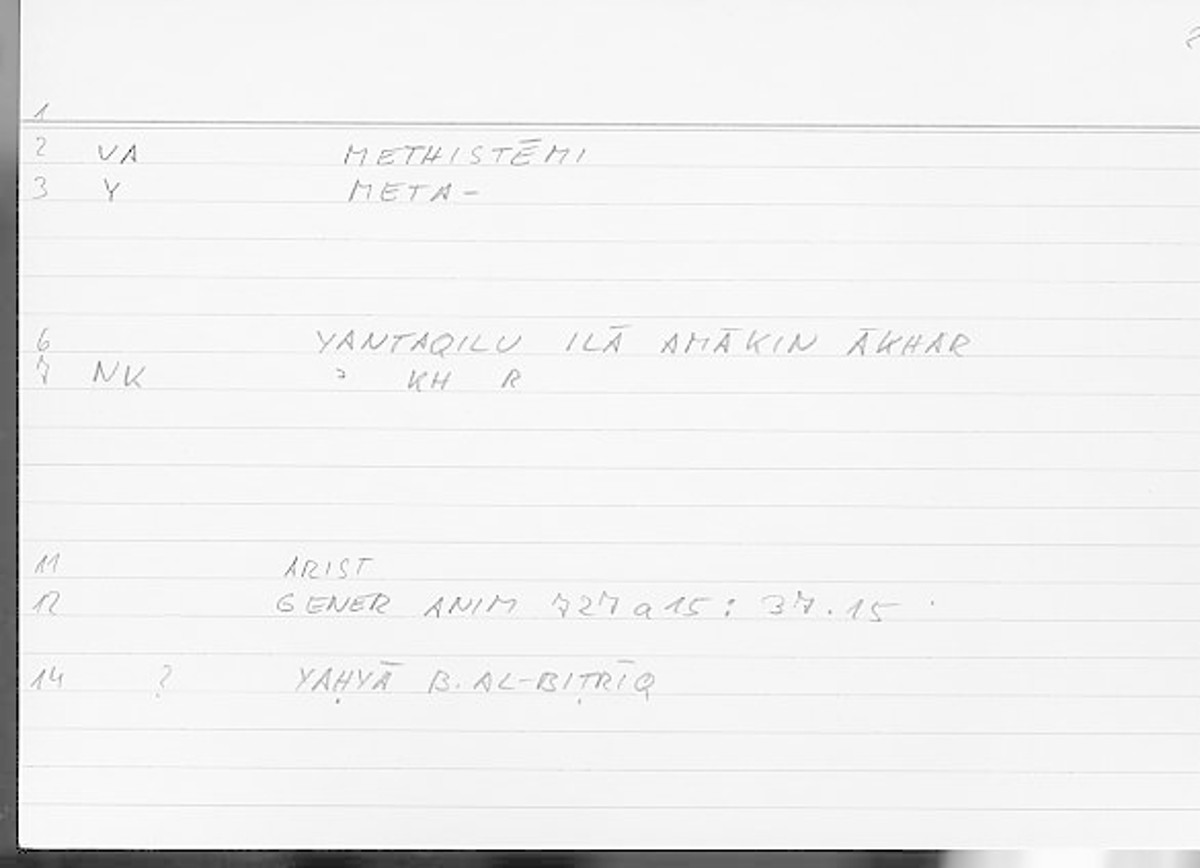 1
2 VA METHISTĒMI
3 Y META-
6 YANTAQILU ILĀ AMĀKIN ĀKHAR
7 NK ʾ KH R
11 ARIST
12 GENER ANIM 727a15: 37.15
14 ? YAḤYĀ B. AL-BIṬRĪQ